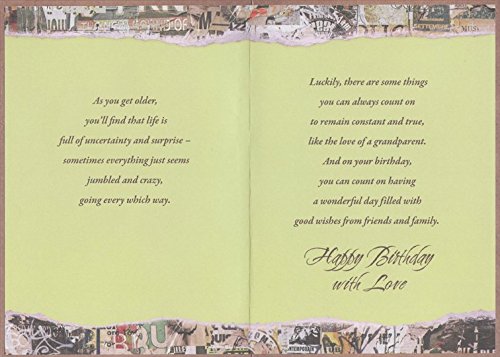 As you get older,
you'll find that life is
full of uncertainty and surprise –
sometimes everything just seems
jumbled and crazy,
going every which way.
Luckily, there are some things
you can always count on
to remain constant and true,
like the love of a grandparent.
And on your birthday,
you can count on having
a wonderful day filled with
good wishes from friends and family.
Happy Birthday
with Love